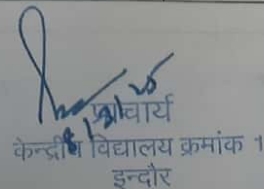 प्राचार्य
केन्द्रीय विद्यालय क्रमांक १
इन्दौर